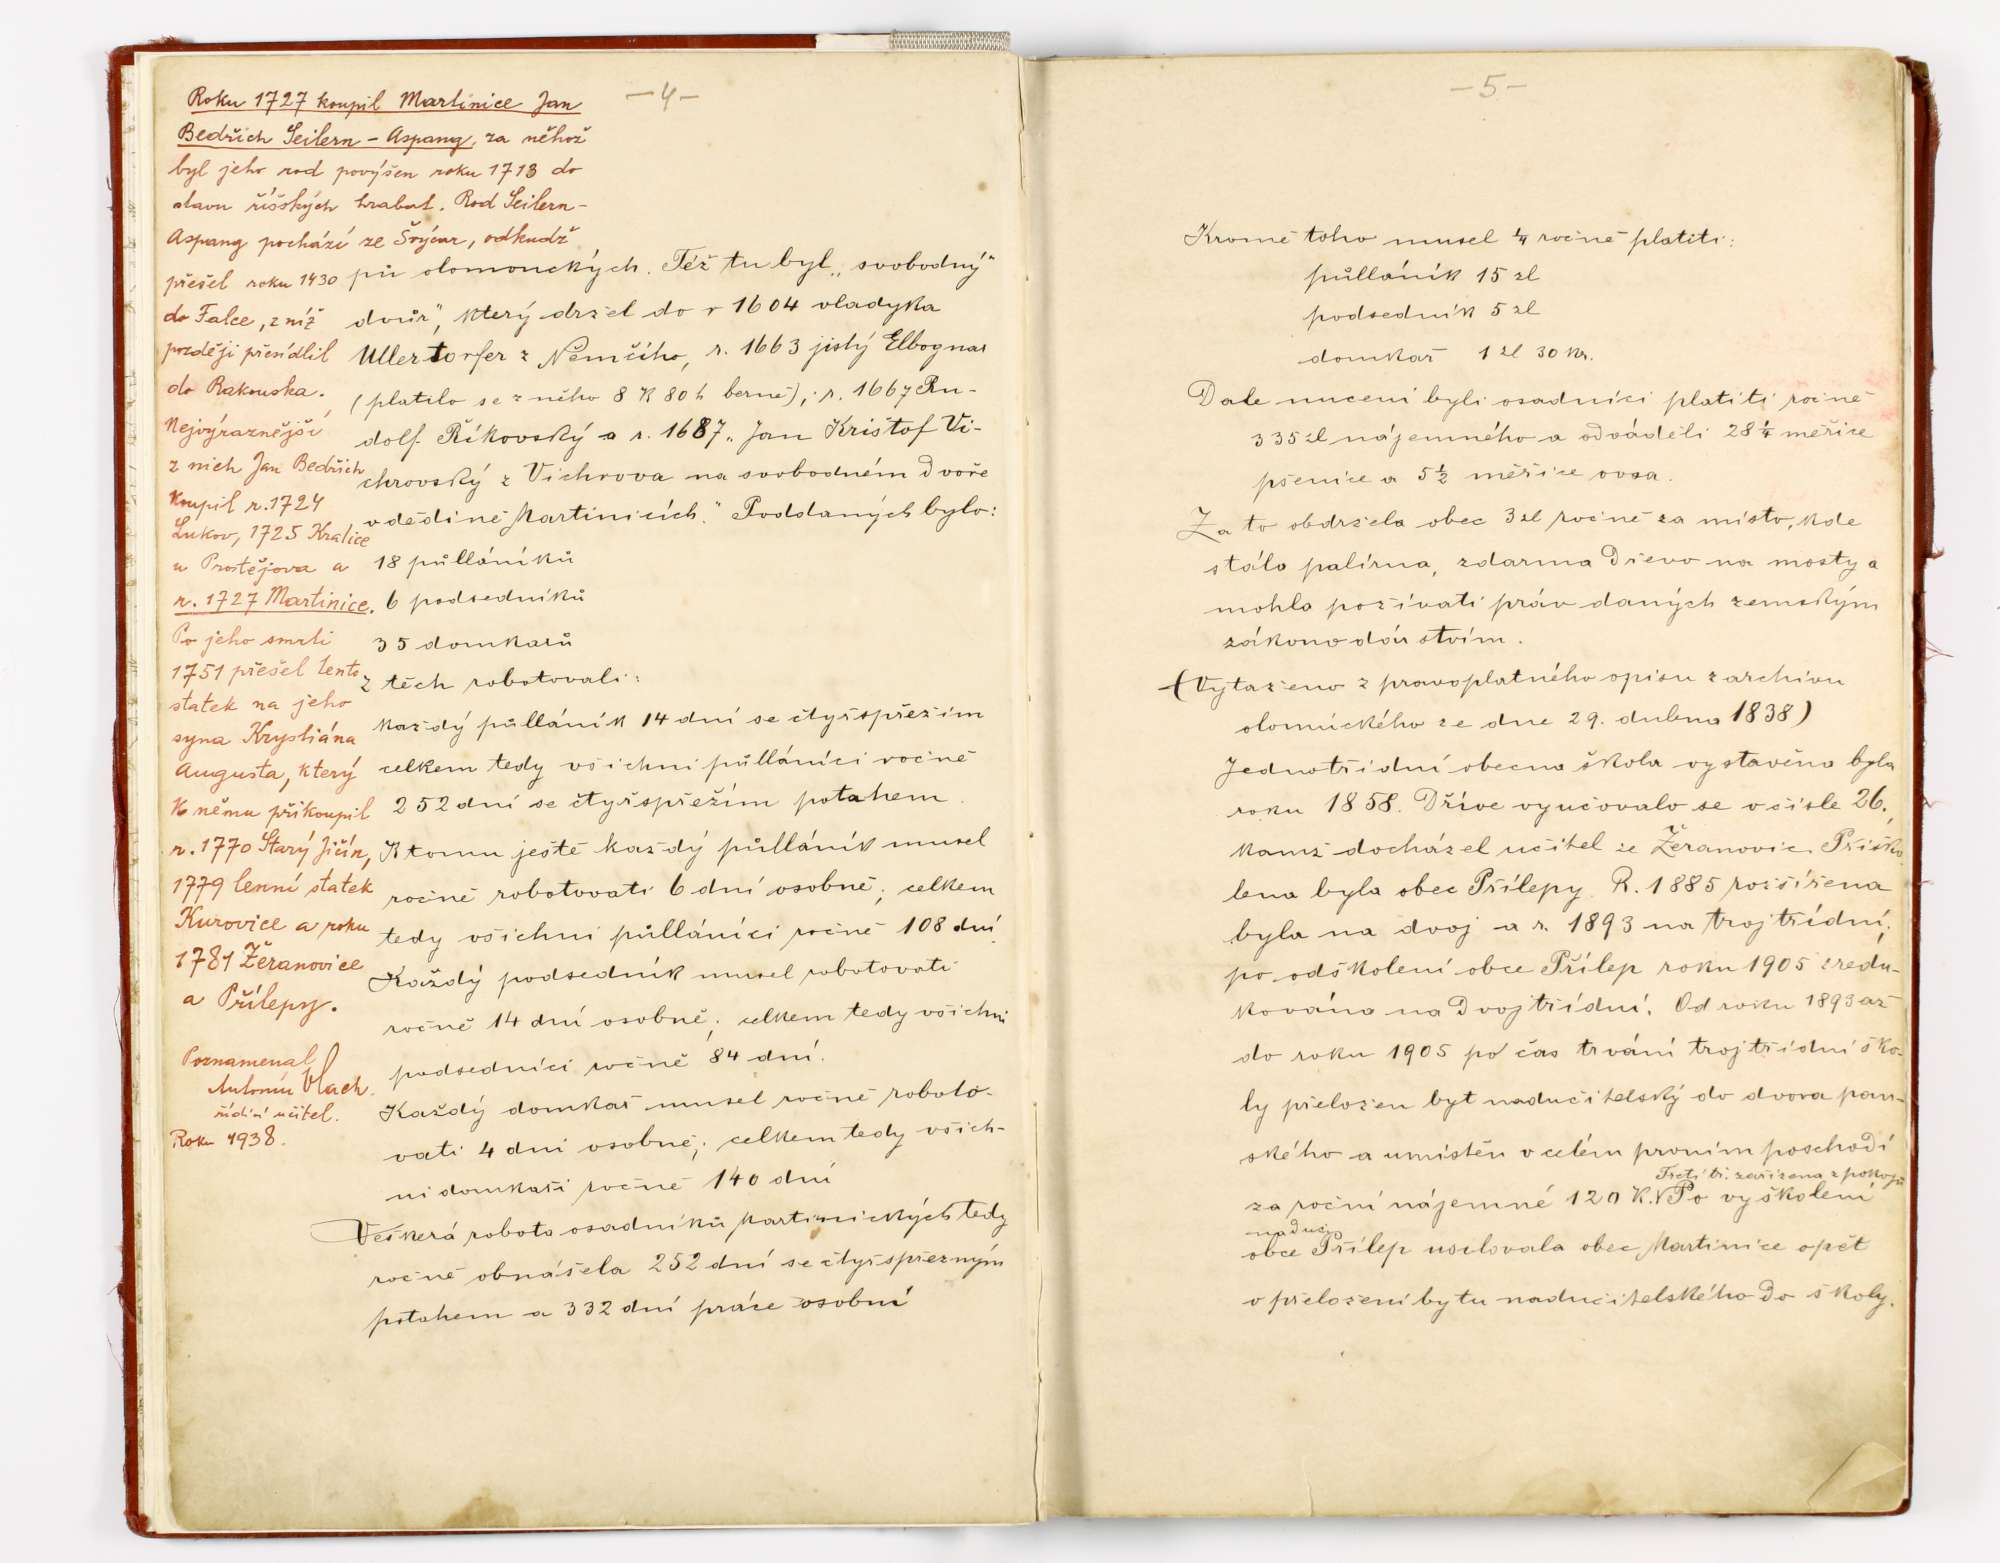 Roku 1727 koupil Martinice Jan
Bedřich Seilern - Aspang, za něhož
byl jeho rod povýšen roku 1713 do
stavu říšských hrabat. Rod Seilern-
Aspang pochází ze Švýcar, odkudž
přešel roku 1430
do Falce, z níž
později přesídlil
do Rakouska.
Nejvýraznější
z nich Jan Bedřich
koupil r. 1724
Lukov, 1725 Kralice
u Prostějova a
r. 1727 Martinice.
Po jeho smrti
1751 přešel tento
statek na jeho
syna Krystiána
Augusta, který
k němu přikoupil
r. 1770 Starý Jičín,
1779 lenní statek
Kurovice a roku
1781 Žeranovice
a Přílepy.
Poznamenal
Antonín Vlach
řídící učitel.
Roku 1938.
- 4 -
pů olomouckých. Též tu byl „svobodný"
dvůr", který držel do r 1604 vladyka
Ullertorfer z Němčího, r. 1663 jistý Elbognar
(platilo se z něho 8 K 80 h berně), r. 1667 Ru-
dolf Říkovský a r. 1687 „Jan Krištof Vi-
chrovský z Vichrova na svobodném dvoře
v dědině Martinicích." Poddaných bylo:
18 půlláníků
6 podsedníků
35 domkařů
z těch robotovali:
každý půlláník 14 dní se čtyřspřežím
celkem tedy všichni půlláníci ročně
252 dní se čtyřspřežím potahem.
K tomu ještě každý půlláník musel
ročně robotovati 6 dní osobně; celkem
tedy všichni půlláníci ročně 108 dní.
Každý podsedník musel robotovati
ročně 14 dní osobně; celkem tedy všichni
podsedníci ročně 84 dní.
Každý domkař musel ročně roboto-
vati 4 dni osobně; celkem tedy všich-
ni domkaři ročně 140 dní
Veškerá robota osadníků Martinických tedy
ročně obnášela 252 dní se čtyřspřežným
potahem a 332 dní práce osobní
- 5 -
Kromě toho musel ¼ ročně platiti:
půlláník 15 zl
podsedník 5 zl
domkař 1 zl 30 kr.
Dale nuceni byli osadníci platiti ročně
335 zl nájemného a odváděli 28 ¼ měřice
pšenice a 5 ½ měřice ovsa.
Za to obdržela obec 3 zl ročně za místo, kde
stála palírna, zdarma dřevo na mosty a
mohla požívati práv daných zemským
zákonodárstvím.
(Vytaženo z pravoplatného opisu z archivu
olomúckého ze dne 29. dubna 1838)
Jednotřídní obecna škola vystavěna byla
roku 1858. Dříve vyučovalo se v čísle 26.,
kamž docházel učitel ze Žeranovic. Přiško
lena byla obec Přílepy. R. 1885 rozšířena
byla na dvoj a r. 1893 na trojtřídní;
po odškolení obce Přílep roku 1905 zredu-
kována na dvojtřídní. Od roku 1893 až
do roku 1905 po čas trvání trojtřídní ško-
ly přeložen byt naducitelský do dvora pan-
ského a umístěn v celém prvním poschodí
Třetí tř. zařízena z pokojů
za roční nájemné 120 K. Po vyškolení
naduč.
obce Přílep usilovala obec Martinice opět
o přeložení bytu naducitelského do školy.